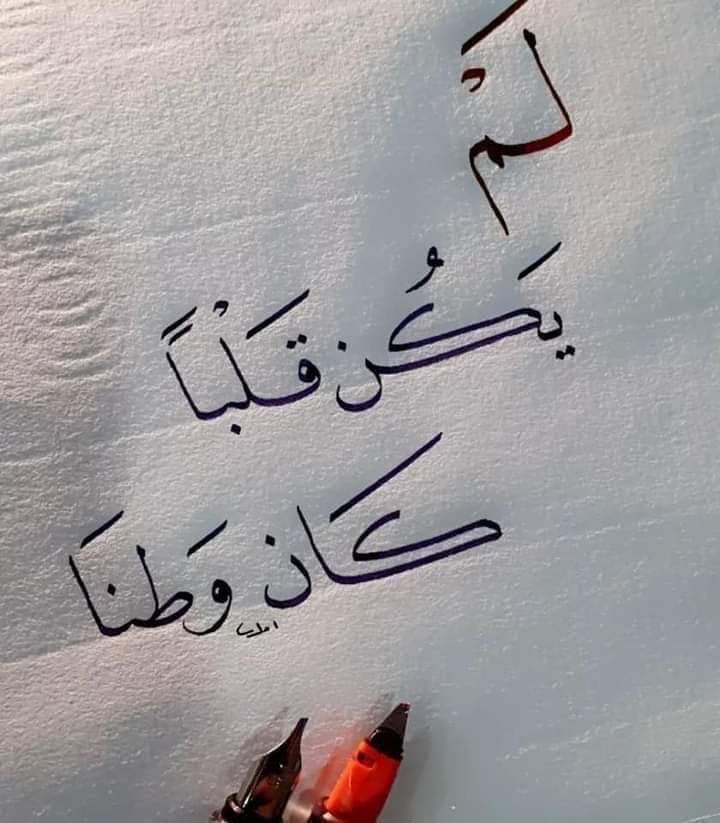 لَمْ
يَكُن قَلْباً
كَان وَطنَا